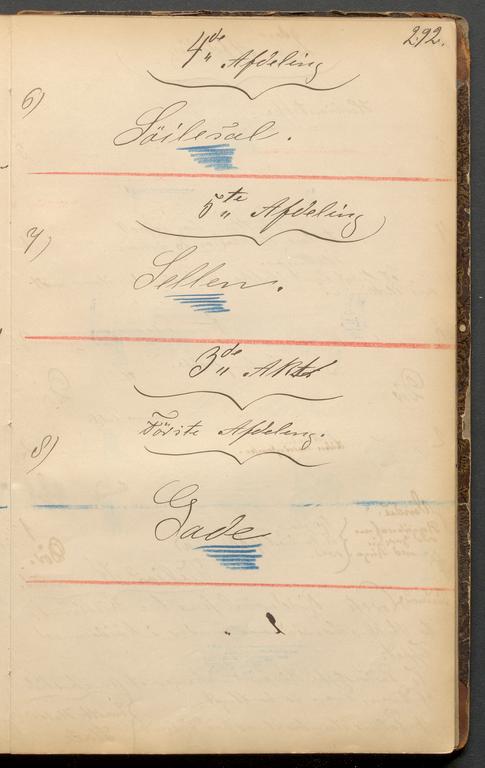 292.
4de Afdeling
6)
Söilesal.
5te Afdeling
7)
Sellen.
3de Akt
Förste Afdeling.
8)
Gade